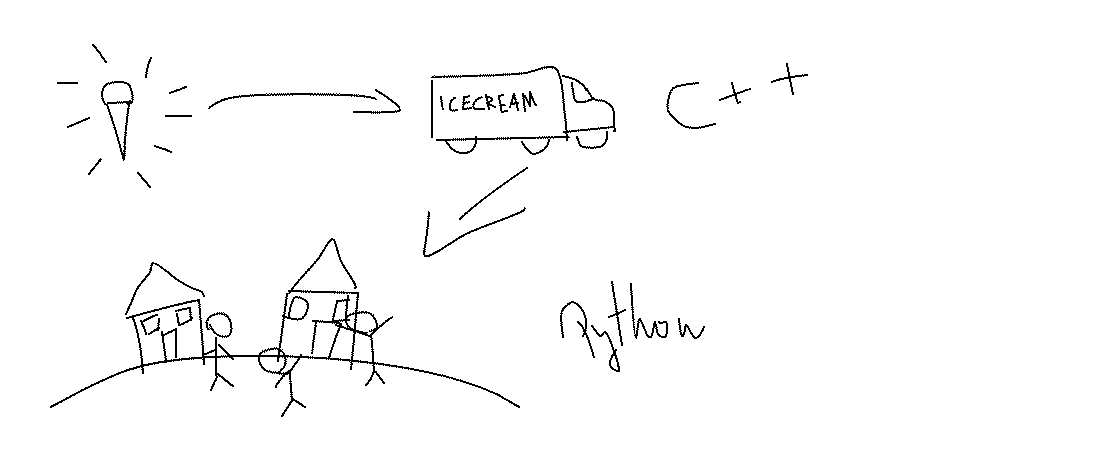 ICECREAM
C++
Python